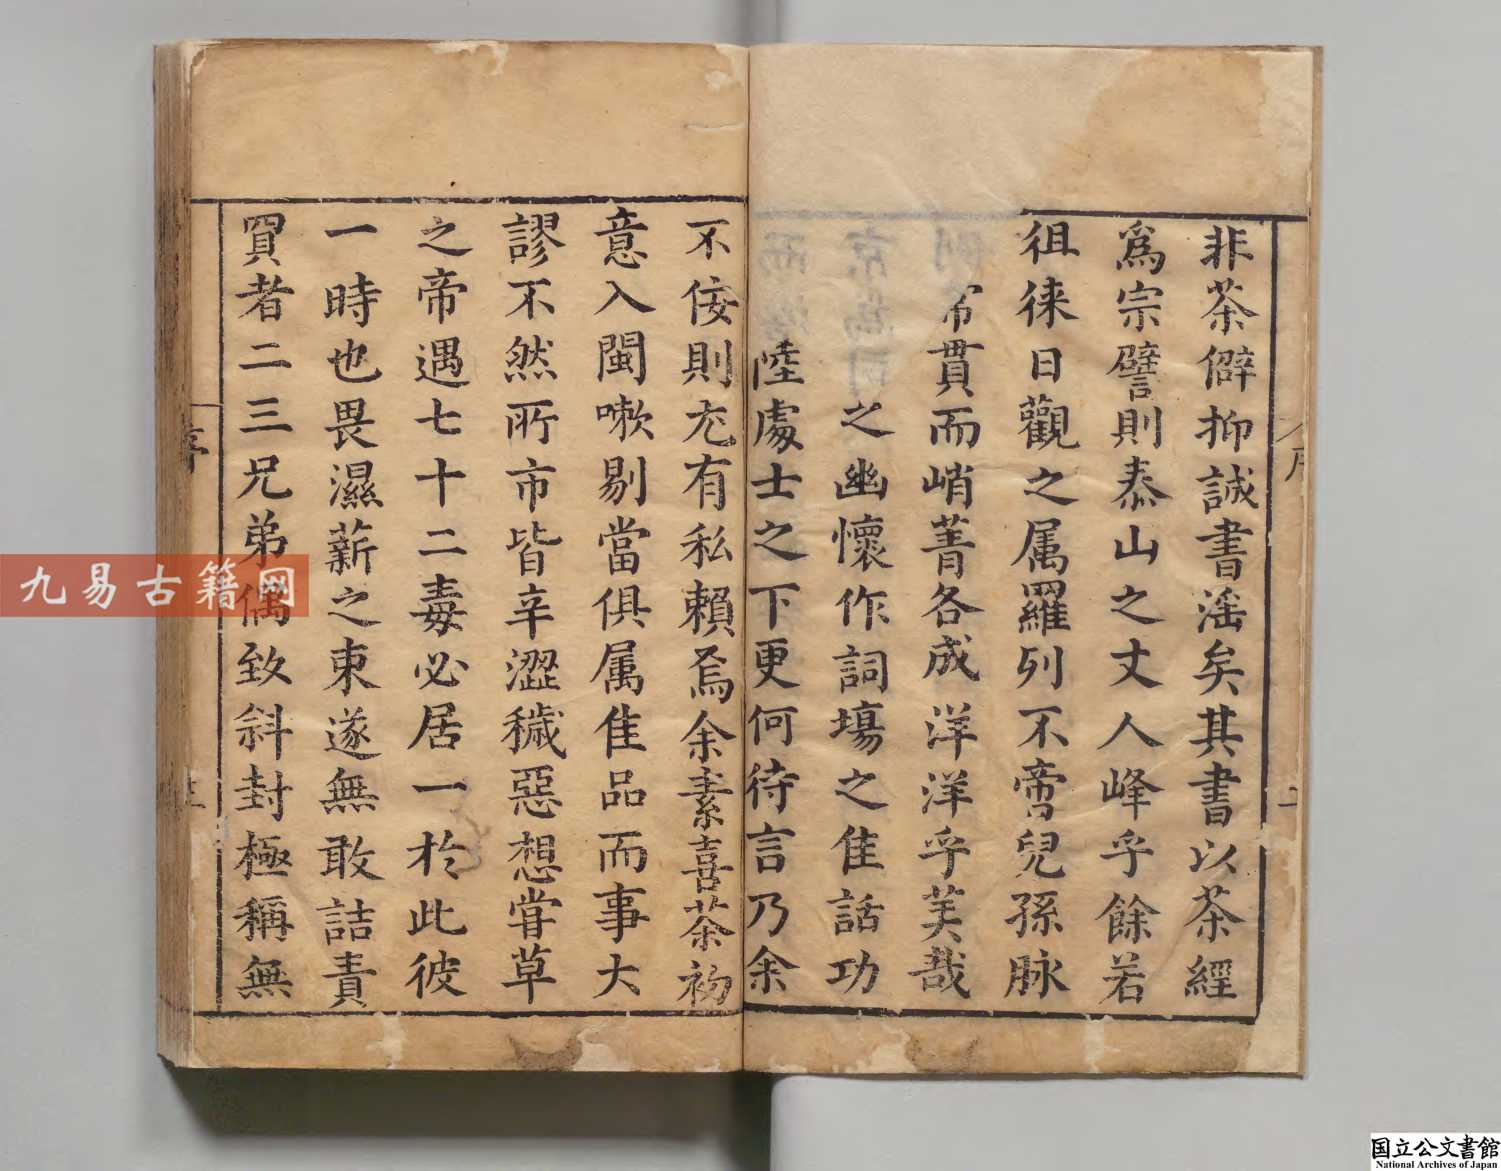 非茶僻抑誠書滛矣其書以茶經
爲宗譬則泰山之丈人峰乎餘若
徂徠日觀之属羅列不啻兒孫脉
貫而峭菁各成洋洋乎美哉
之幽懷作詞塲之佳話功
陸處士之下更何待言乃余
不佞則尤有私賴焉余素喜茶初
意入閩嗽剔當俱属佳品而事大
謬不然所市皆辛澀穢惡想甞草
之帝遇七十二毒必居一於此彼
一時也畏濕薪之束遂無敢詰責
買者二三兄弟偶致斜封極稱無
序
九易古籍网
国立公文書館
National Archives of Japan